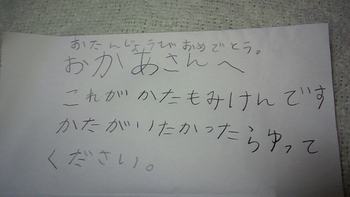 おたんじょうびおめでとう。
おかあさんへ
これがかたもみけんです
かたがいたかったらゆって
ください。